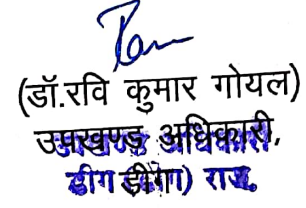 (डॉ.रवि कुमार गोयल)
उपखण्ड अधिकारी,
डीग (डीग) राज.